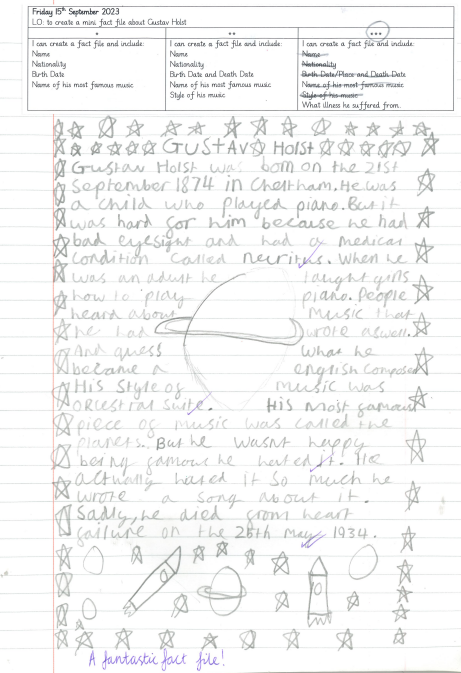 Friday 15th September 2023
LO: to create a mini fact file about Gustav Holst
* ** ***
I can create a fact file and include: I can create a fact file and include: I can create a fact file and include:
Name Name Name
Nationality Nationality Nationality
Birth Date Birth Date and Death Date Birth Date/Place and Death Date
Name of his most famous music Name of his most famous music Name of his most famous music
Style of his music Style of his music
What illness he suffered from.
GUSTAV Holst
Gustav Holst was born on the 21st
September 1874 in Cheltham. He was
a child who played piano. But it
was hard for him because he had
bad eyesight and had a medical
condition called neuritus. When he
was an adult he taught girls
how to play piano. People
heard about music that
he had wrote aswell.
And guess what he
became a english composer
His style of music was
orcestral suite. His most famous
piece of music was called the
planets. But he wasnt happy
being famous he hated it. He
actually hated it so much he
wrote a song about it.
Sadly, he died from heart
failure on the 25th may 1934.
A fantastic fact file!